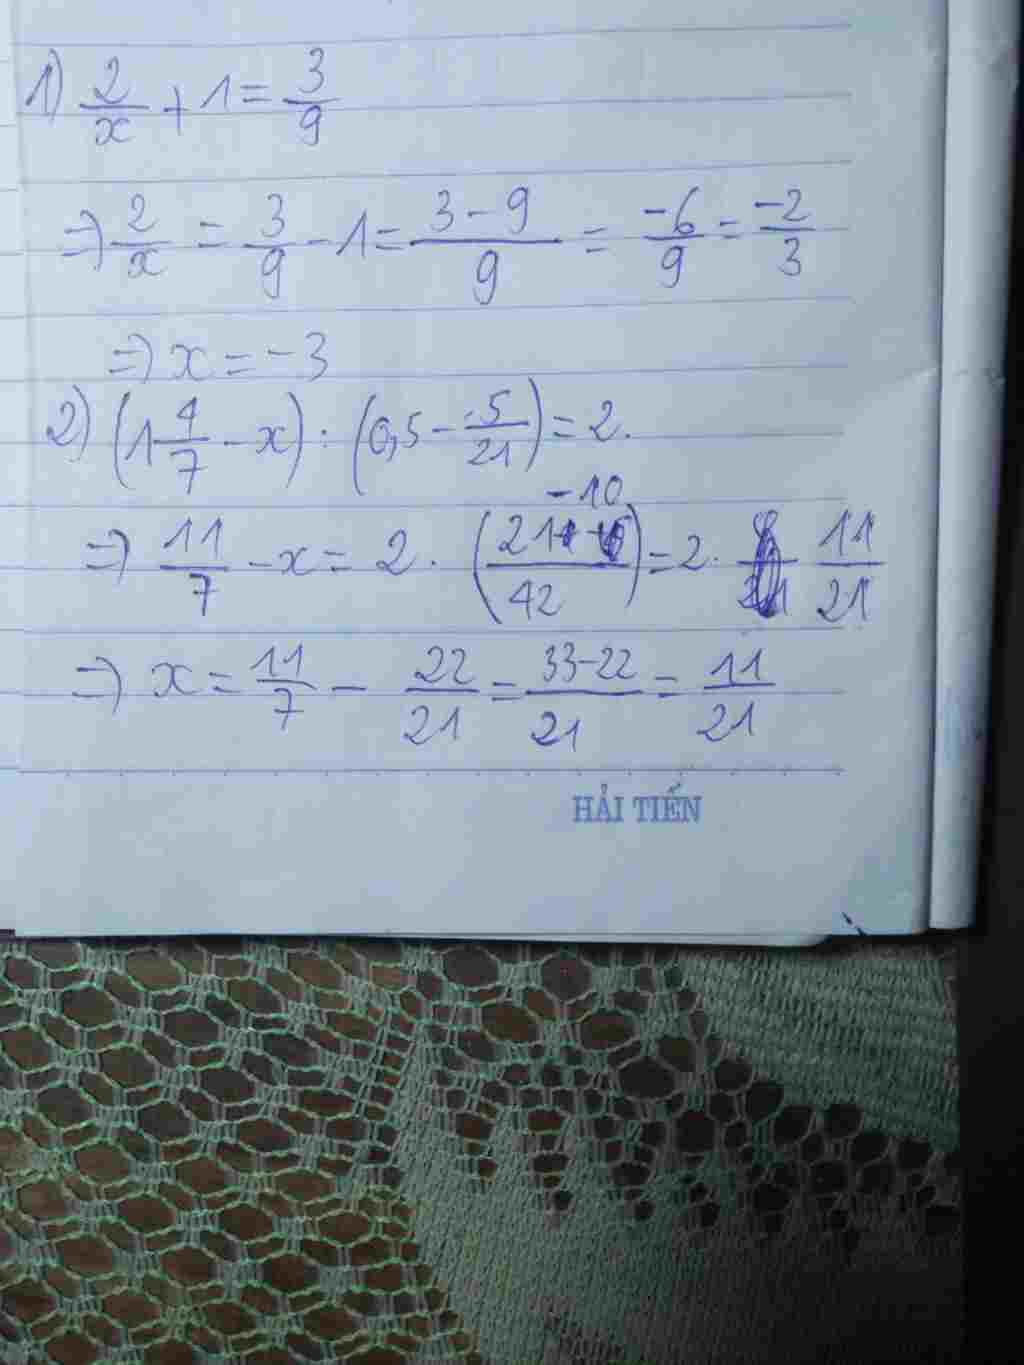 1) 2/x + 1 = 3/9
=> 2/x = 3/9 - 1 = (3 - 9)/9 = -6/9 = -2/3
=> x = -3
2) (1 4/7 - x) : (0,5 - 5/21) = 2.
=> 11/7 - x = 2 . ((21 - 10)/42) = 2 . 11/21
=> x = 11/7 - 22/21 = (33 - 22)/21 = 11/21
HẢI TIẾN